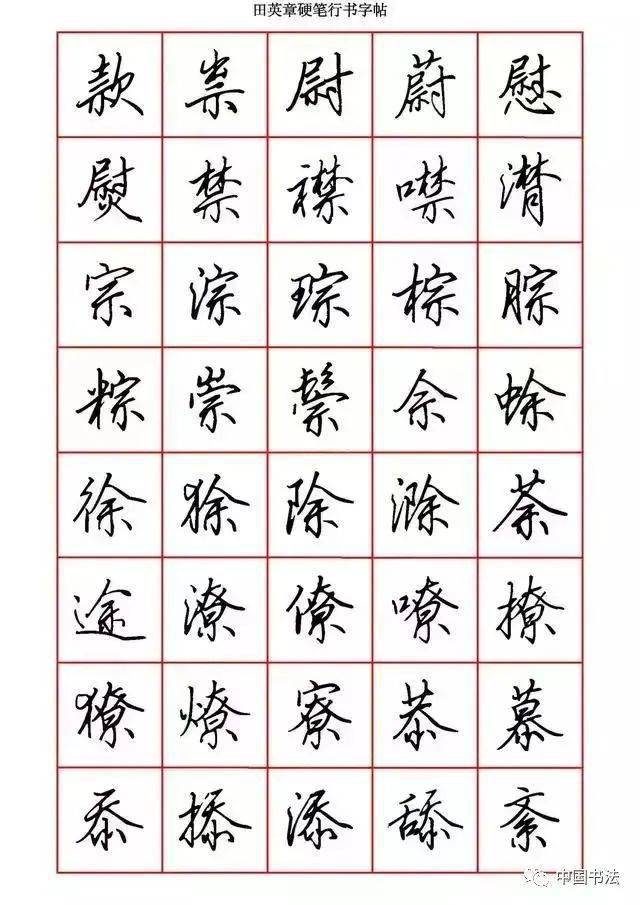 田英章硬笔行书字帖
款祟尉蔚慰
熨禁襟噤潸
宗淙琮棕腙
粽崇鬃佘蜍
徐狳除滁荼
途潦僚嘹撩
獠燎寮恭慕
忝掭添舔紊
中国书法